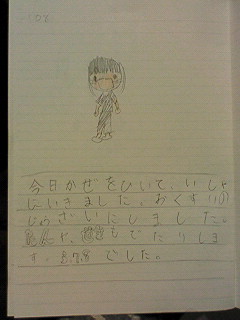 今日かぜをひいて、いしゃ
にいきました。おくすりの
じょうざいにしました。
や、もでたりしま
す。でした。